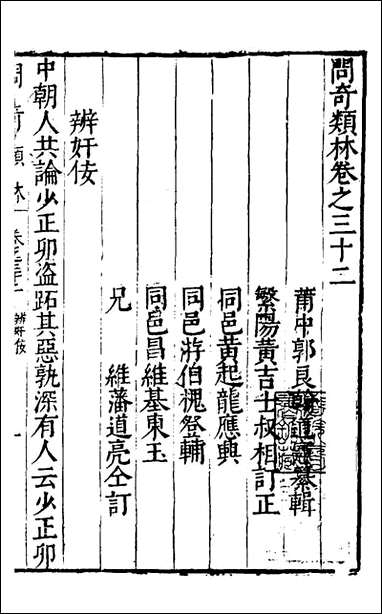 問奇類林卷之三十二
莆中郭良翰道憲纂輯
繁陽黃吉士叔相訂正
同邑黃起龍應興
同邑游伯槐登輔
同邑昌維基東玉
兄 維藩道亮仝訂
辨奸佞
中朝人共論少正卯盗跖其惡孰深有人云少正卯
問奇類林 卷之三十二 辨奸佞 一